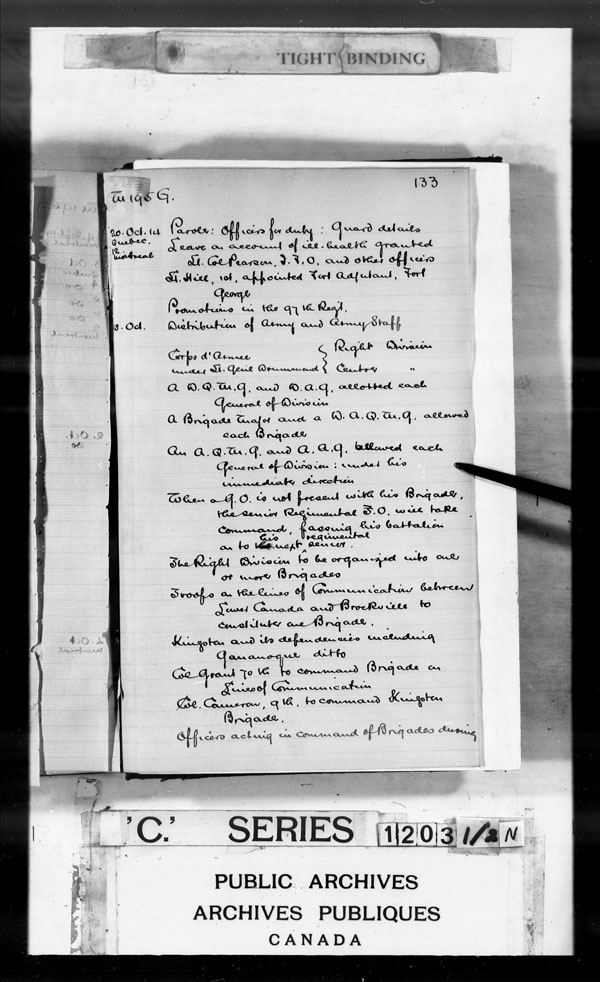 TIGHT BINDING
133
M 195 G.
20. Oct. 14 Parole: Officers for duty: Guard details
Quebec. Leave on account of ill-health granted
Montreal Lt. Col Pearson, I.F.O, and other officers
Lt. Hill, 1st, appointed Fort Adjutant, Fort
George
Promotions in the 97th Regt.
Oct. Distribution of Army and Army Staff
Corps d'Armee { Right Division
under Lt. Genl Drummond { Centre "
A D.Q.M.G. and D.A.G. allotted each
General of Division
A Brigade Major and a D.A.Q.M.G. allowed
each Brigade
An A.Q.M.G. and A.A.G. allowed each
General of Division: under his
immediate direction
When a G.O. is not present with his Brigade,
the senior Regimental F.O. will take
command, passing his battalion
on to his next regimental senior.
The Right Division to be organized into one
or more Brigades
Troops on the lines of Communication between
Lower Canada and Brockville to
constitute one Brigade.
Kingston and its defencies including
Gananoque ditto
Col Grant 70th to command Brigade on
Lines of Communication
Col. Cameron, 9th, to command Kingston
Brigade.
Officers acting in command of Brigades during
'C.' SERIES 1203 1/2 N
PUBLIC ARCHIVES
ARCHIVES PUBLIQUES
CANADA